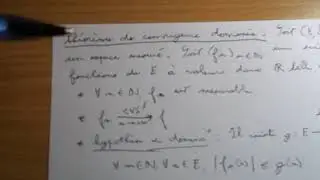 Théorème de convergence dominée. Soit (E,
un espace mesuré. Soit (fn) n∈ℕ une sui
fonctions de E à valeurs dans ℝ tell
* ∀ n ∈ ℕ, fn est mesurable
* fn n→+∞ f
* "hypothèse de domin" : Il existe g : E →
∀ n ∈ ℕ, ∀ x ∈ E, |fn(x)| ≤ g(x)